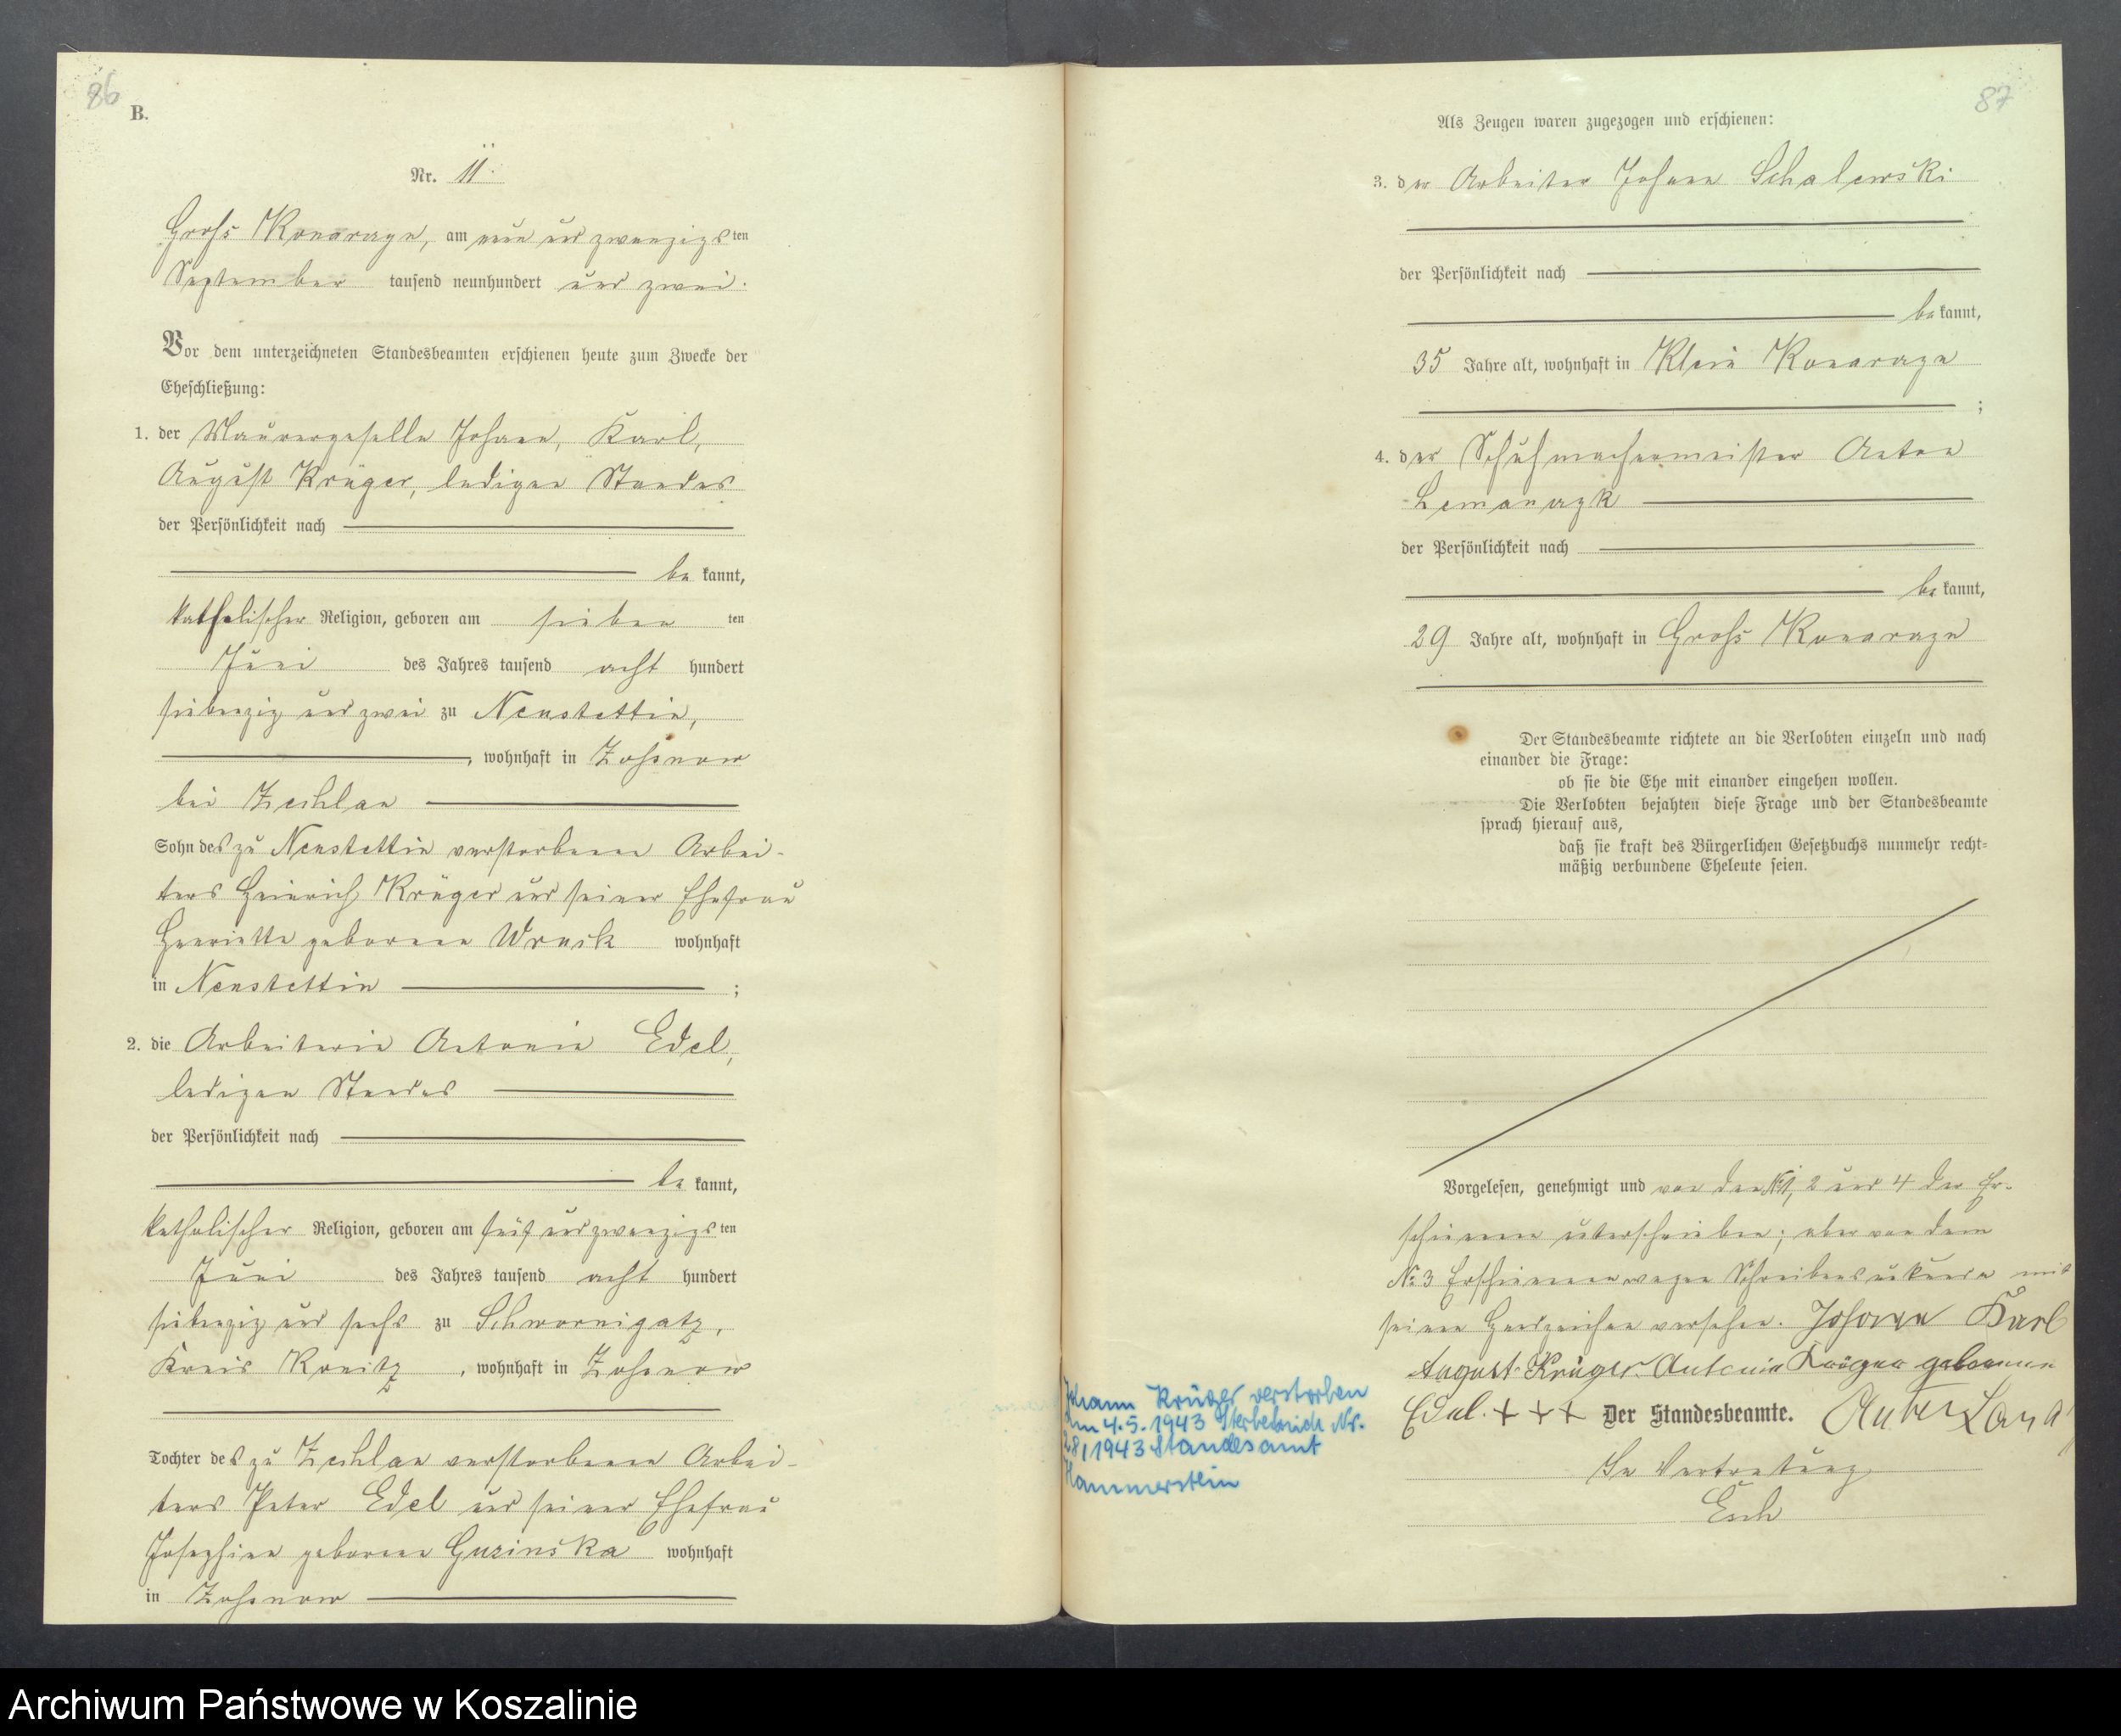 86
B.
Nr. 11.
Gross Konarzyn, am neun und zwanzigsten
September tausend neunhundert und zwei.
Vor dem unterzeichneten Standesbeamten erschienen heute zum Zwecke der
Eheschließung:
1. der Maurergeselle Johann, Karl,
August Krüger, ledigen Standes
der Persönlichkeit nach
bekannt,
katholischer Religion, geboren am siebenten
Juni des Jahres tausend acht hundert
siebenzig und zwei zu Neustettin,
, wohnhaft in Zossnow
bei Zechlau
Sohn des zu Neustettin verstorbenen Arbei-
ters Heinrich Krüger und seiner Ehefrau
Henriette geborenen wohnhaft
in Neustettin ;
2. die Arbeiterin Antonie Edel,
ledigen Standes
der Persönlichkeit nach
bekannt,
katholischer Religion, geboren am fünf und zwanzigsten
Juni des Jahres tausend acht hundert
siebenzig und sechs zu Schwornigatz,
Kreis Konitz, wohnhaft in Zossnow
Tochter des zu Zechlau verstorbenen Arbei-
ters Peter Edel und seiner Ehefrau
Josephine geborene Gusinska wohnhaft
in Zossnow
87
Als Zeugen waren zugezogen und erschienen:
3. der Arbeiter Johann Schalewski
der Persönlichkeit nach
bekannt,
35 Jahre alt, wohnhaft in Klein Konarzyn
;
4. der Schuhmachermeister Anton
Lemanczyk
der Persönlichkeit nach
bekannt,
29 Jahre alt, wohnhaft in Gross Konarzyn
Der Standesbeamte richtete an die Verlobten einzeln und nach
einander die Frage:
ob sie die Ehe mit einander eingehen wollen.
Die Verlobten bejahten diese Frage und der Standesbeamte
sprach hierauf aus,
daß sie kraft des Bürgerlichen Gesetzbuchs nunmehr recht-
mäßig verbundene Eheleute seien.
Vorgelesen, genehmigt und von den № 1, 2 und 4 der Er-
schienenen unterschrieben; aber von dem
№ 3 Erschienenen wegen Schreibensunkunde mit
seinen Handzeichen versehen. Johann Karl
August Krüger. Antonie Krüger geborene
Edel. + + + Der Standesbeamte.
In Vertretung
Esch
Johann Krüger verstorben
am 4.5.1943 Sterbebuch Nr.
28/1943 Standesamt
Hammerstein
Archiwum Państwowe w Koszalinie